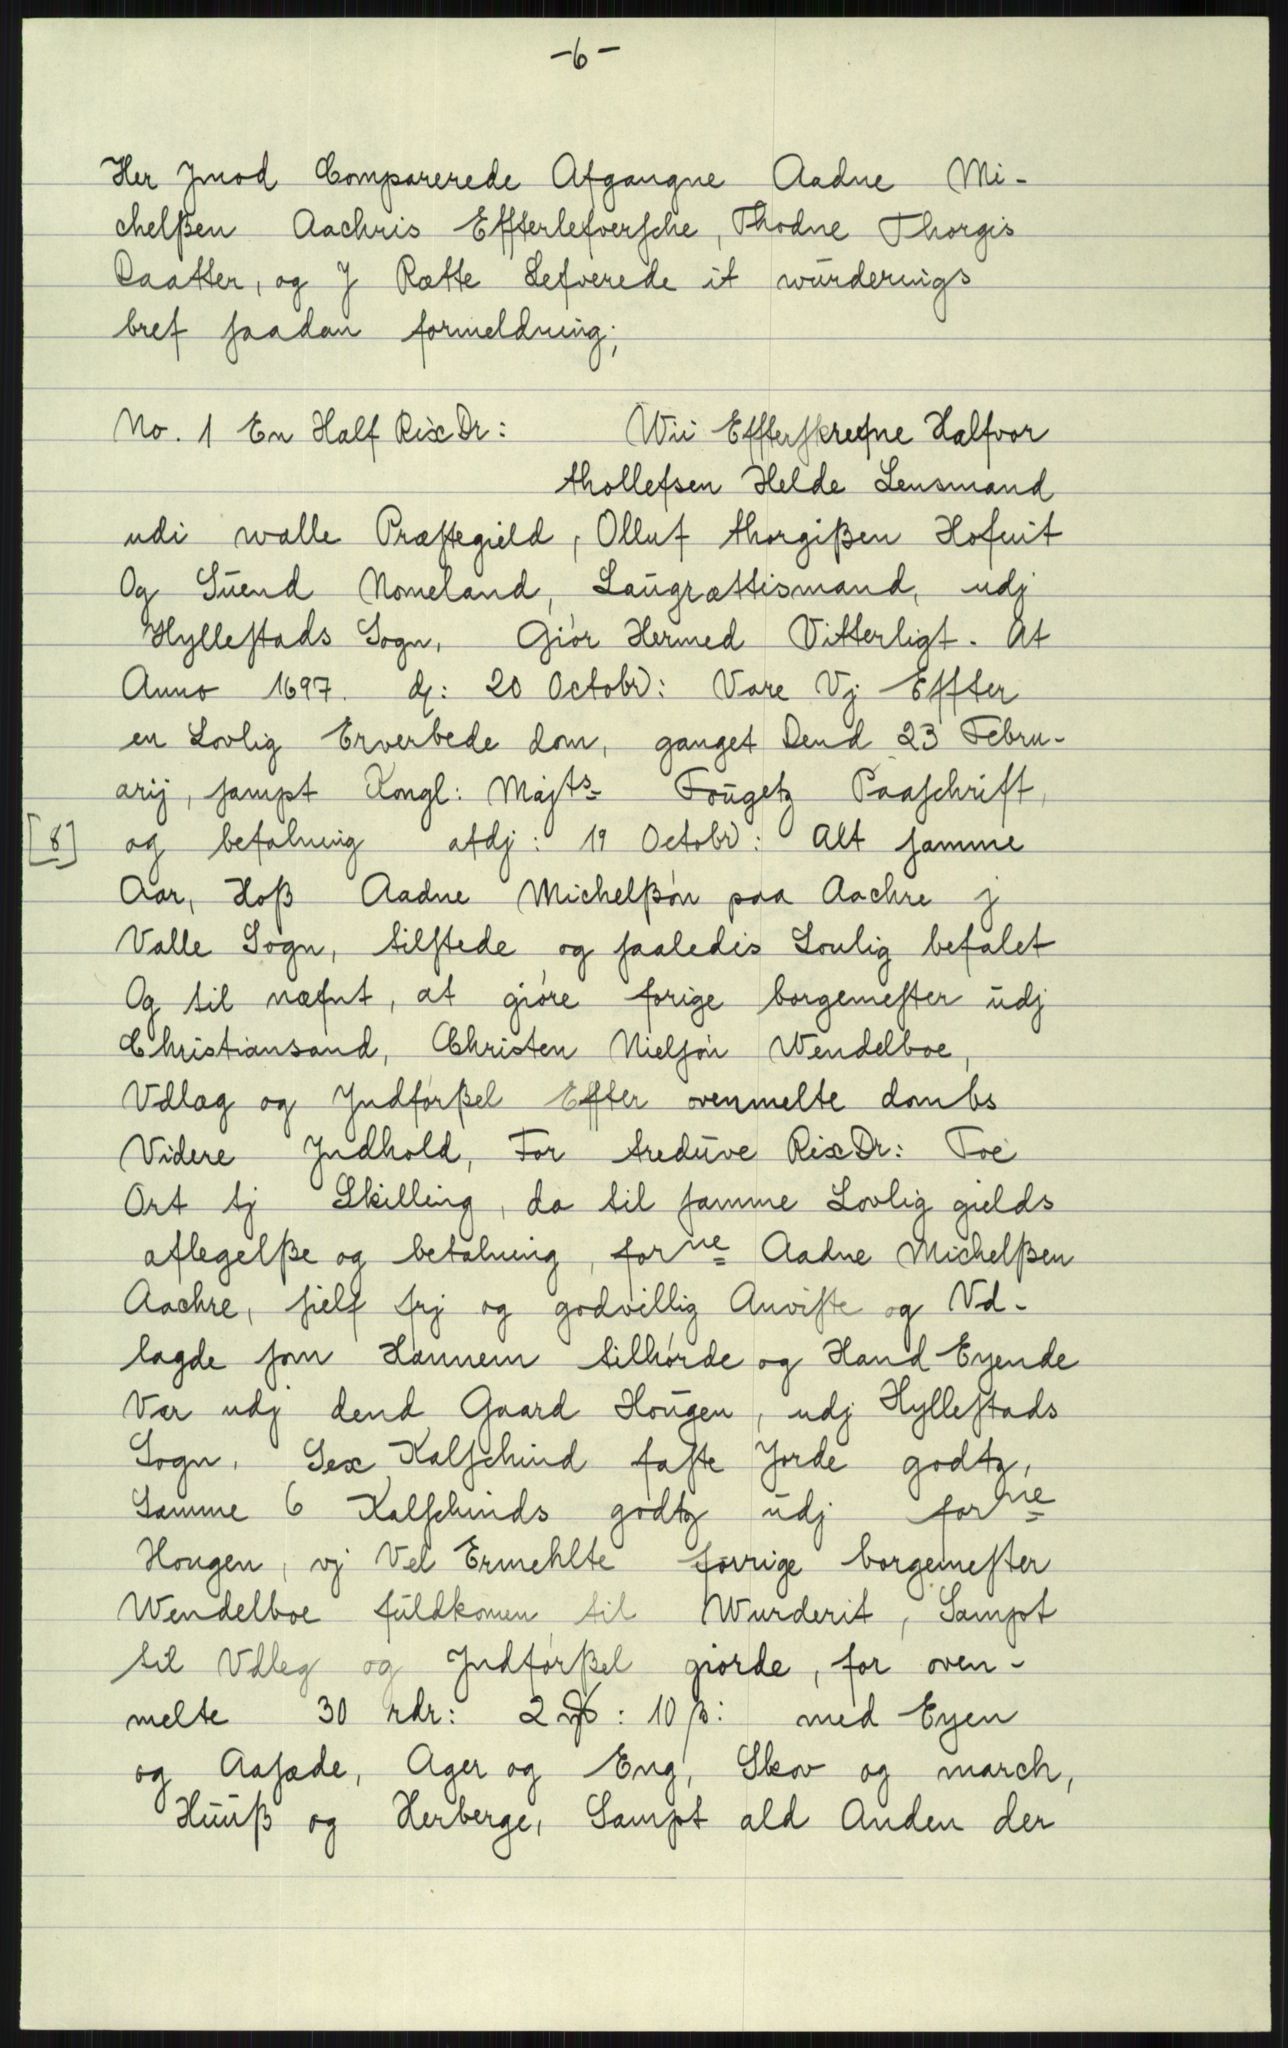 -6-
Her Jmod Comparerede Afgangne Aadne Mi-
chelßen Aachris Effterlefversche, Thodne Thorgis
Daatter, og J Rætte Lefverede it würderings
bref saadan formeldning;
No. 1 En Half RixDr: Wii Effterskrefne Halfvor
thollefsen Helde Lensmand
udi walle Præstegield, Olluf thorgißen Hofuit
Og Suend Nomeland, Laugrættismand, udj
Hyllestads Sogn, Giör Hermed Vitterligt. At
Anno 1697. dj: 20 Octobr: Vare Vj Effter
en Lovlig Erverbede dom, ganget Dend 23 Febru-
arij, sampt Kongl: Majts= Fougetz Paaschrift,
[8] og befalning afdj: 19 Octobr: Alt samme
Aar, Hoß Aadne Michelßön paa Aachre j
Valle Sogn, tilstede og saaledis Loulig befalet
Og til næfnt, at giöre forige borgemester udj
Christiansand, Christen Nielsön Wendelboe,
Vdlæg og Jndförßel Effter ovenmelte dombs
Videre Jndhold, For tredüve RixDr: Toe
Ort tj Skilling, da til samme Lovlig gields
aflegelße og betalning, forne= Aadne Michelßen
Aachre, sielf frj og godvillig Anviste og Vd-
lagde som Hannem tilhörde og Hand Eyende
Var udj dend Gaard Hougen, udj Hyllestads
Sogn, Sex Kalfschind faste Jorde godtz,
Samme 6 Kalfschinds godtz udj forne=
Hougen, vj Vel Ermehlte forrige borgemester
Wendelboe fuldkomen til Wurderit, Sampt
til Vdleg og Jndförßel giorde, for oven-
melte 30 rdr: 2 : 10 ß: med Eyen
og Aasæde, Ager og Eng, Skov og march,
Huuß og Herberge, Sampt ald Anden der